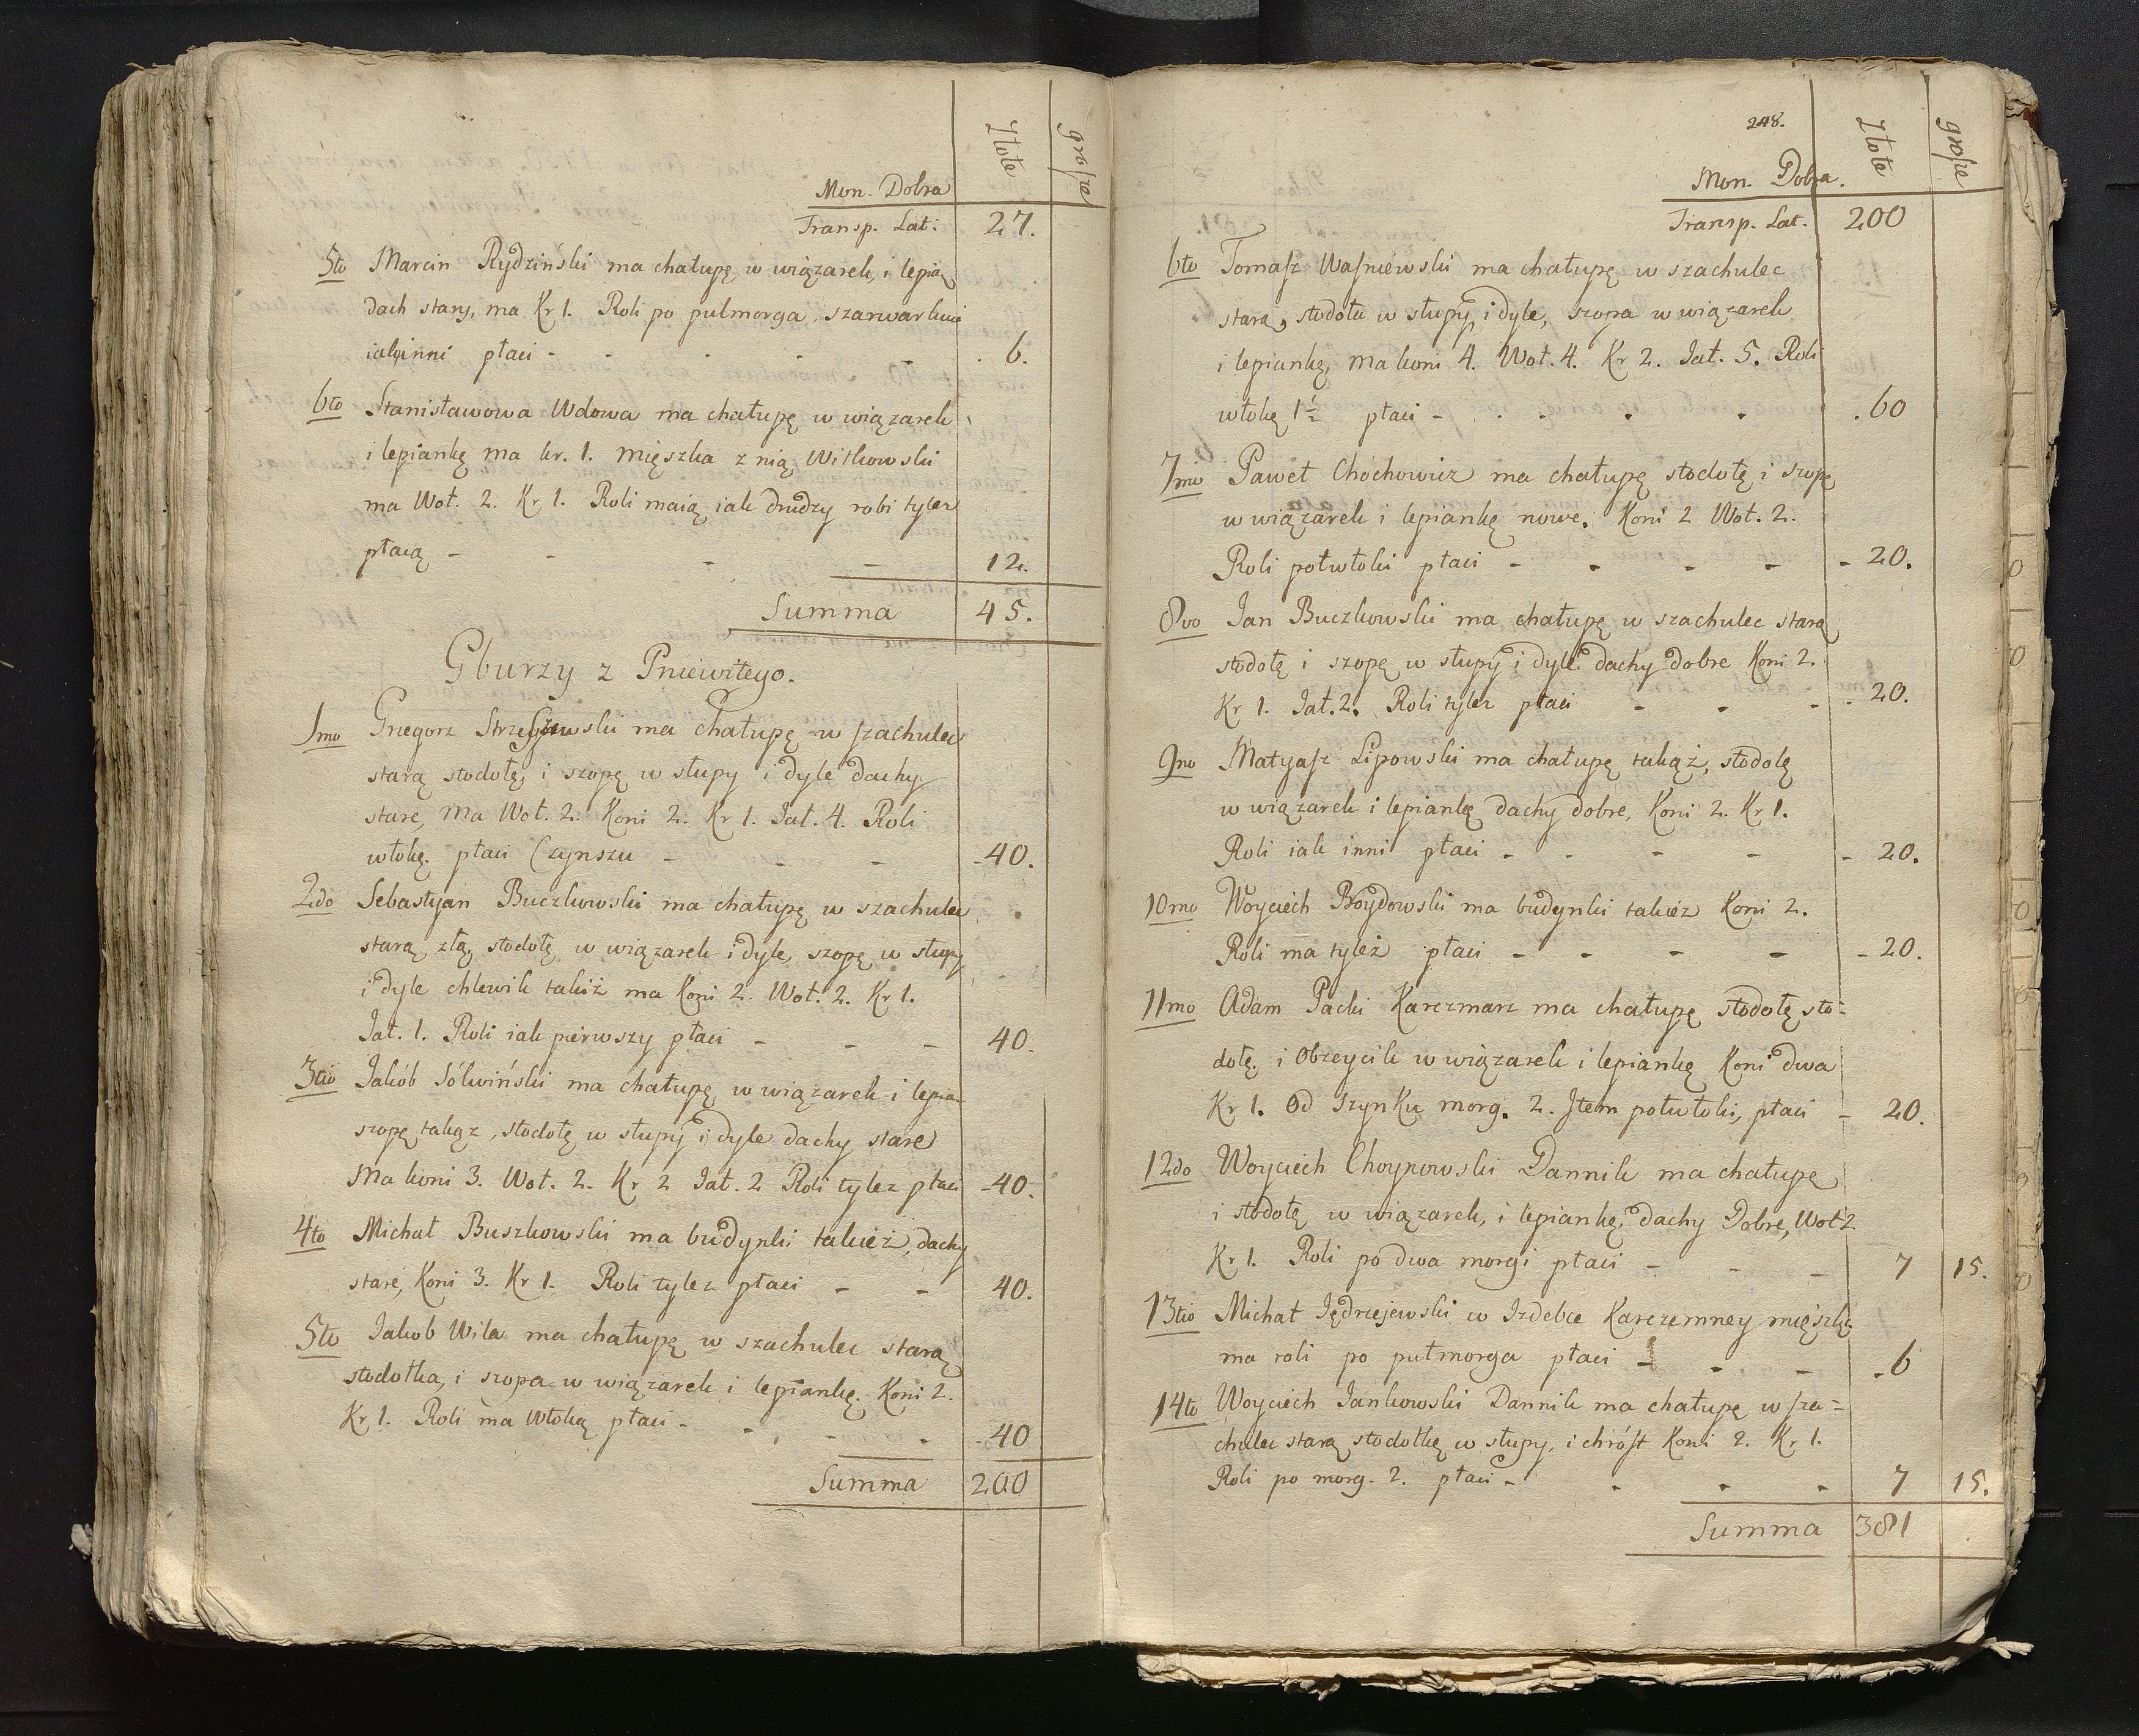 Złote
grosze
Mon. Dobra
Transp. Lat. 27.
5to Marcin Rydziński ma chałupę w wiązarek, i lepian
dach stary, ma Kr 1. Roli po pulmorga, szarwarkuie
iak inni płaci - - - - - 6.
6to Stanisławowa Wdowa ma chałupę w wiązarek
i lepiankę ma kr. 1. mięszka z nią Witkowski
ma Woł. 2. Kr 1. Roli maią iak drudzy robi tylez
płacą - - - - 12.
Summa 45.
Gburzy z Pniewitego.
1mo Gregorz ma chałupę w szachulec
starą stodołę, i szopę w słupy i dyle dachy
stare, Ma Woł. 2. Koni 2. Kr 1. Jał. 4. Roli
włokę. płaci Czynszu - - - - 40.
2do Sebastyan Buczkowski ma chałupę w szachulec
starą złą, stodołę w wiązarek i dyle, szopę w słupy
i dyle chlewik takiż ma Koni 2. Woł. 2. Kr 1.
Jał. 1. Roli iak pierwszy płaci - - - 40.
3tio Jakób Sólwiński ma chałupę w wiązarek i lepian
szopę takąz, stodołę w słupy i dyle dachy stare
Ma koni 3. Woł. 2. Kr 2 Jał. 2 Roli tylez płaci - 40.
4to Michał Buszkowski ma budynki takież, dachy
stare, Koni 3. Kr 1. Roli tylez płaci - - 40.
5to Jakob Wila ma chałupę w szachulec starą
stodołka, i szopa w wiązarek i lepiankę. Koni 2.
Kr 1. Roli ma Włoką płaci - - - - - 40
Summa 200
248.
Złote
grosze
Mon. Dobra.
Transp. Lat. 200
6to Tomasz Wasniewski ma chałupę w szachulec
starą, stodoła w słupy i dyle, szopa w wiązarek
i lepiankę, ma koni 4. Woł. 4. Kr 2. Jał. 5. Roli
włokę 1½ płaci - - - - - 60
7mo Paweł Chochowicz ma chałupę stodołę i szopę
w wiązarek i lepiankę nowe. Koni 2 Woł. 2.
Roli połwłoki płaci - - - - - 20.
8vo Jan Buczkowski ma chałupę w szachulec starą
stodołę i szopę w słupy i dyle dachy dobre Koni 2.
Kr 1. Jał. 2. Roli tylez płaci - - - - 20.
9no Matyasz Lipowski ma chałupę takąż, stodołę
w wiązarek i lepiankę dachy dobre, Koni 2. Kr 1.
Roli iak inni płaci - - - - - 20.
10mo Woyciech ma budynki takiéz Koni 2.
Roli ma tyleż płaci - - - - - 20.
11mo Adam Packi Karczmarz ma chałupę stodołę sto=
dołę. i Obzeycik w wiązarek i lepiankę Koni dwa
Kr 1. Od Szynku morg. 2. Item połwłoki, płaci - 20.
12do Woyciech Choynowski Dannik ma chałupę
i stodołę w wiązarek, i lepiankę, dachy Dobre, Woł 2
Kr 1. Roli po dwa morgi płaci - - - 7 15.
13tio Michał Jędrzejewski w Izdebce Karczemney mięszka
ma roli po pułmorga płaci - - - - 6
14to Woyciech Jankowski Dannik ma chałupę w sza=
chulec starą stodołkę w słupy, i chróst Koni 2. Kr 1.
Roli po morg. 2. płaci - - - - 7 15.
Summa 381